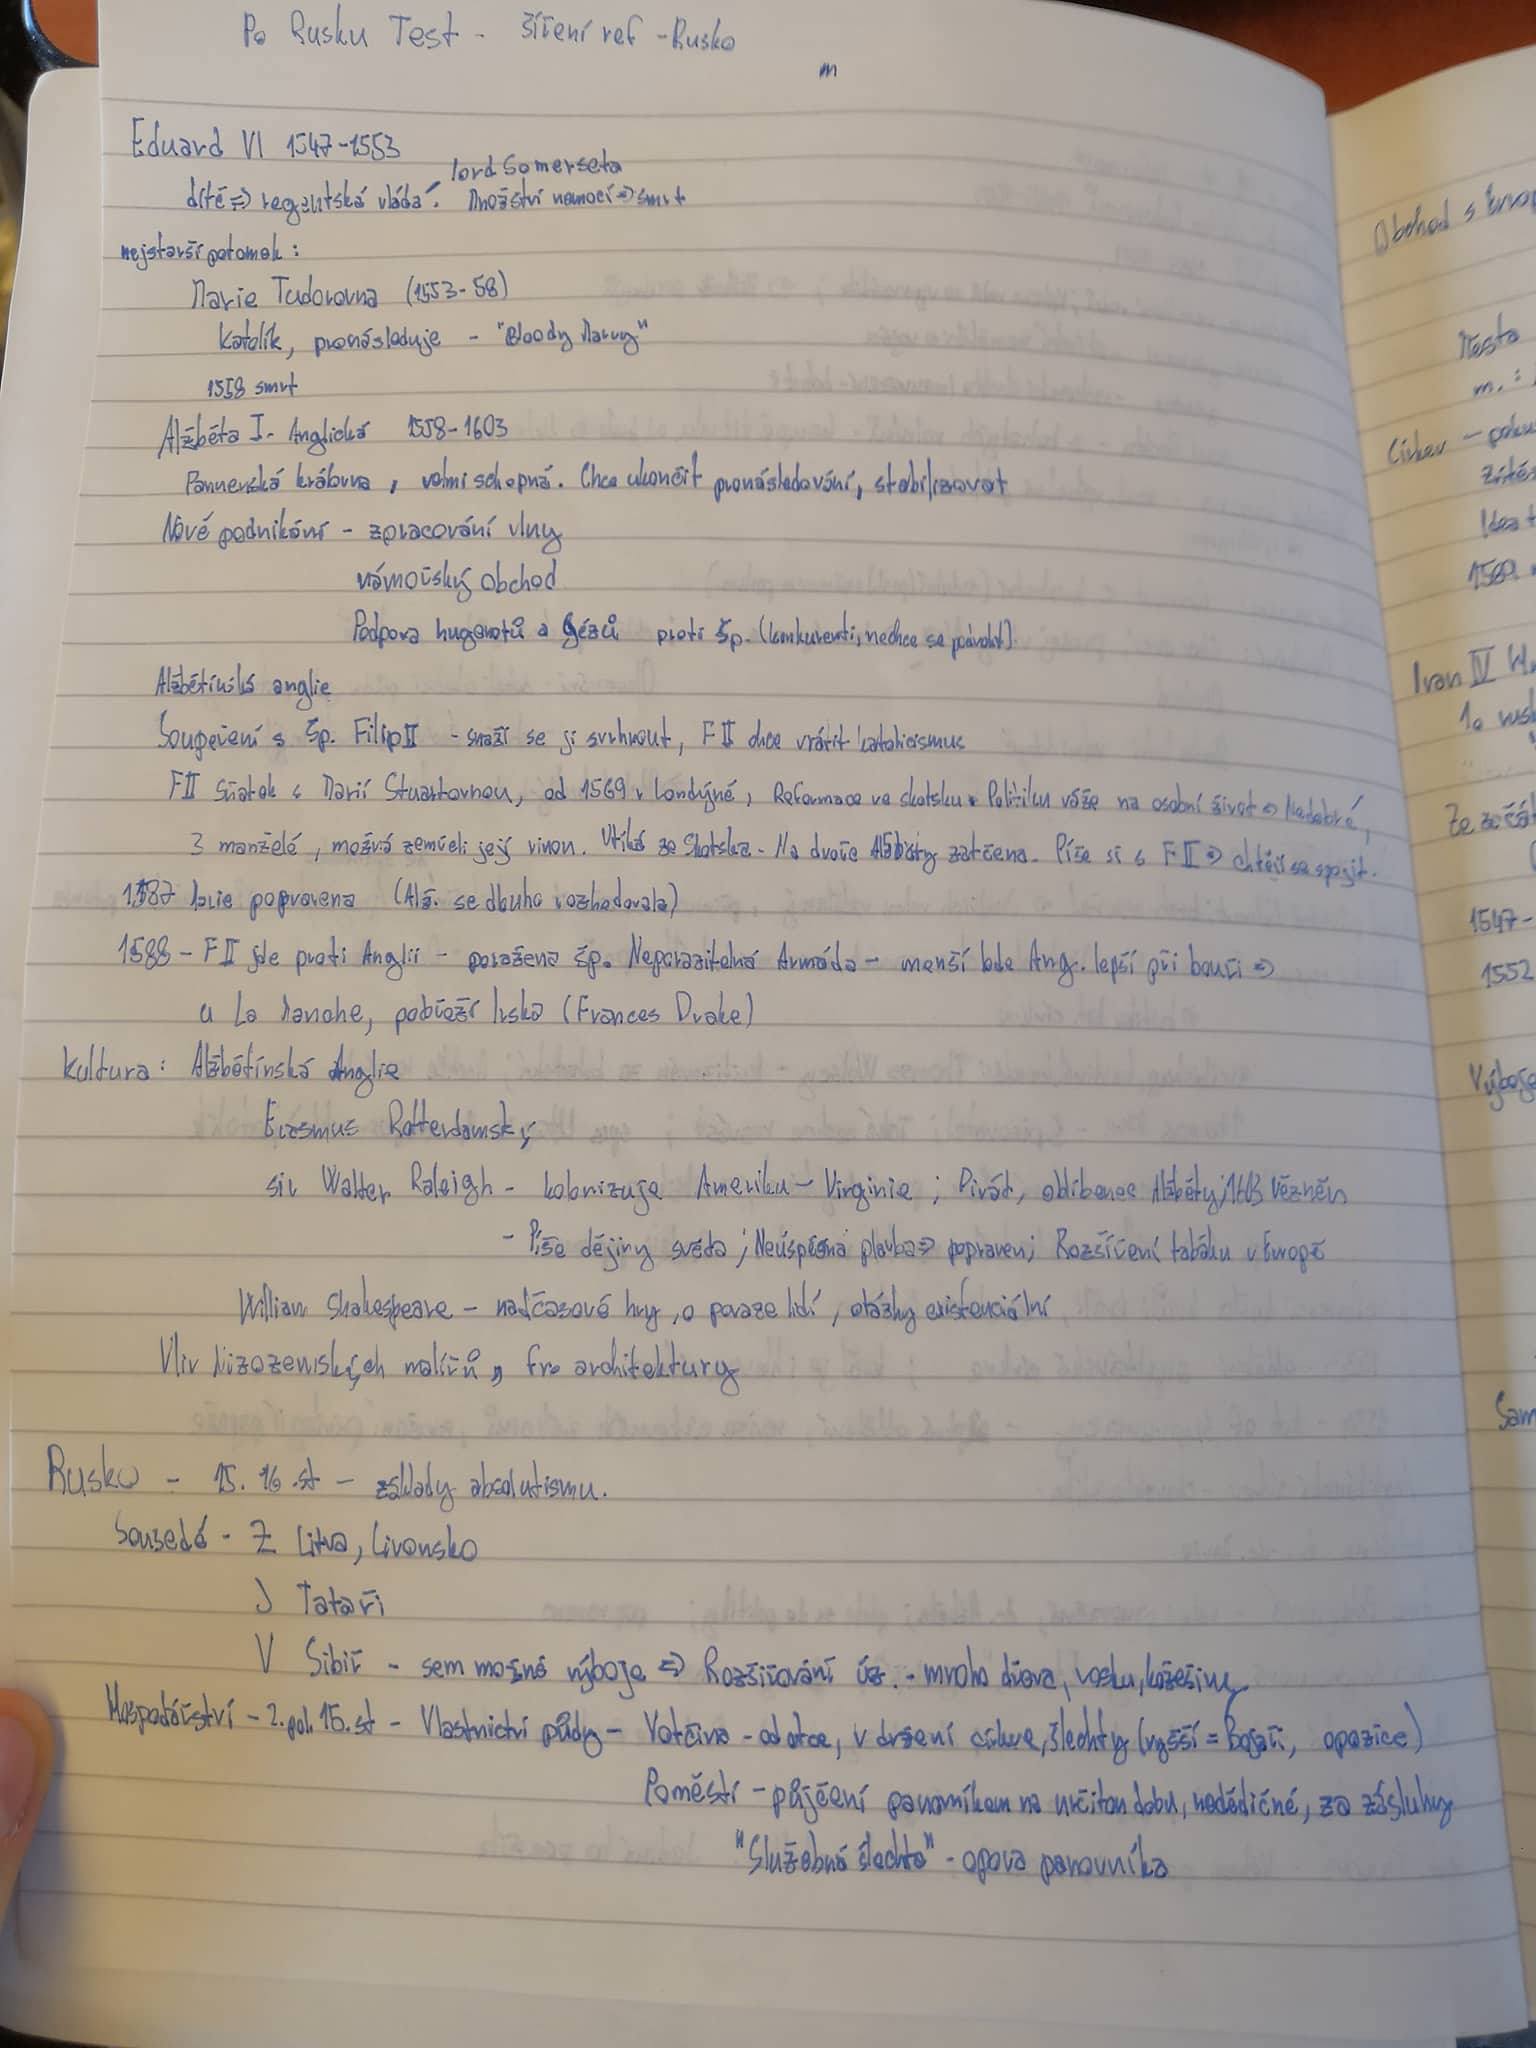 Po Rusku Test - šíření ref - Rusko
m
Eduard VI 1547-1553
lord Somerseta
dítě => regentská vláda. Množství nemocí => smrt
nejstarší potomek:
Marie Tudorovna (1553-58)
Katolík, pronásleduje - "Bloody Marry"
1558 smrt
Alžběta I. Anglická 1558-1603
Pannenská královna, velmi schopná. Chce ukončit pronásledování, stabilizovat
Nové podnikání - zpracování vlny
námořský obchod
Podpora hugenotů a Gézů proti Šp. (konkurenti, nechce se podvolit)
Alžbětínská anglie
Soupeření s Šp. Filip II - snaží se ji svrhnout, F II chce vrátit katolicismus
F II Sňatek s Marií Stuartovnou, od 1569 v Londýně, Reformace ve skotsku. Politiku váže na osobní život => Nedobré,
3 manželé, možná zemřeli její vinou. Utíká ze Skotska - Na dvoře Alžběty zatčena. Píše si s F II => chtějí se spojit.
1587 Marie popravena (Alž. se dlouho rozhodovala)
1588 - F II jde proti Anglii - poražena Šp. Neporazitelná Armáda - menší lodě Ang. lepší při bouři =>
u La Manche, pobřeží Irska (Frances Drake)
Kultura: Alžbětínská Anglie
Erasmus Rotterdamský
sir Walter Raleigh - kolonizuje Ameriku - Virginie ; Pirát, oblíbenec Alžběty; 1603 Vězněn
- Píše dějiny světa ; Neúspěšná plavba => popraven; Rozšíření tabáku v Evropě
William Shakespeare - nadčasové hry, o povaze lidí, otázky existenciální
Vliv Nizozemských malířů, fra architektury
Rusko - 15. 16. st - základy absolutismu.
Sousedé - Z Litva, Livonsko
J Tataři
V Sibiř - sem možné výboje => Rozšiřování úz. - mnoho dřeva, vosku, kožešiny
Hospodářství - 2. pol. 15. st - Vlastnictví půdy - Votčina - od otce, v držení církve, šlechty (vyšší = Bojaři, opozice)
Poměstí - půjčení panovníkem na určitou dobu, nedědičné, za zásluhy
"Služebná šlechta" - opora panovníka
Obchod s
Města
m. :
Církev -
1589
Ivan IV
1. rusk
Ze začát
1547-
1552
Výboje
Sam